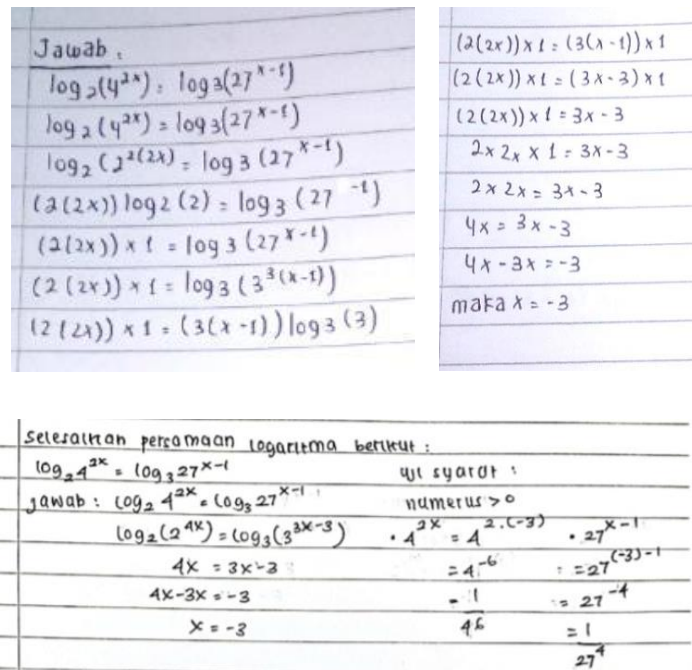 Jawab :
log₂(4²ˣ) = log3(27ˣ⁻¹)
log₂(4²ˣ) = log3(27ˣ⁻¹)
log₂(2²⁽²ˣ⁾ = log3(27ˣ⁻¹)
(2(2x)) log2(2) = log₃(27 ⁻¹)
(2(2x)) × 1 = log3(27ˣ⁻¹)
(2(2x)) × 1 = log3(3³⁽ˣ⁻¹⁾)
(2(2x)) × 1 = (3(x-1)) log3(3)
(2(2x)) × 1 = (3(x-1)) × 1
(2(2x)) × 1 = (3x-3) × 1
(2(2x)) × 1 = 3x-3
2 × 2x × 1 = 3x-3
2 × 2x = 3x-3
4x = 3x-3
4x-3x = -3
maka x = -3
Selesaikan persamaan logaritma berikut :
log₂4²ˣ = log₃27ˣ⁻¹
uji syarat :
Jawab : log₂ 4²ˣ = log₃ 27ˣ⁻¹
numerus > 0
log₂(2⁴ˣ) = log₃(3³ˣ⁻³)
4x = 3x-3
4x-3x = -3
x = -3
• 4²ˣ = 4²·⁽⁻³⁾
= 4⁻⁶
= 1
4⁶
• 27ˣ⁻¹
= 27⁽⁻³⁾⁻¹
= 27⁻⁴
= 1
27⁴